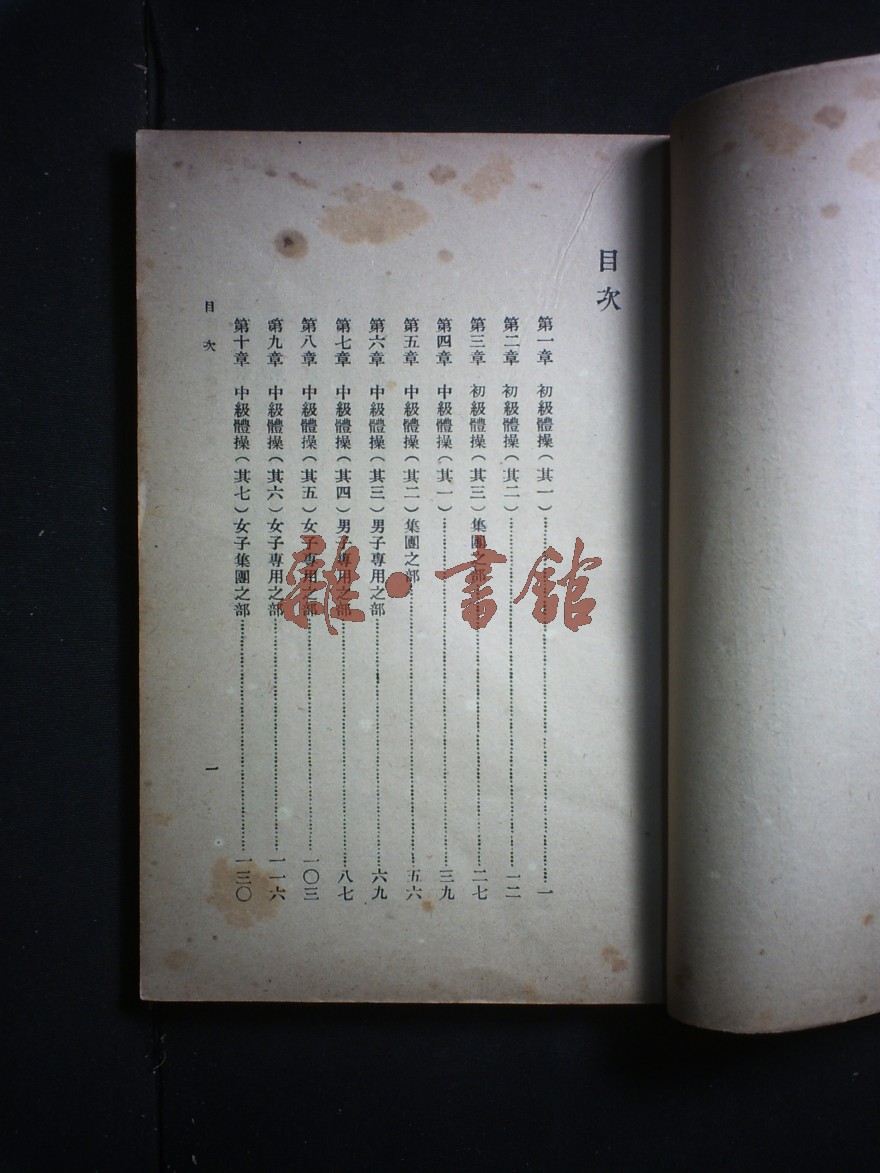 目次
第一章 初級體操（其一）……一
第二章 初級體操（其二）……一二
第三章 初級體操（其三）集團之部……二七
第四章 中級體操（其一）……三九
第五章 中級體操（其二）集團之部……五六
第六章 中級體操（其三）男子専用之部……六九
第七章 中級體操（其四）男子専用之部……八七
第八章 中級體操（其五）女子専用之部……一〇三
第九章 中級體操（其六）女子専用之部……一一六
第十章 中級體操（其七）女子集團之部……一三〇
目次
一
雜·書館